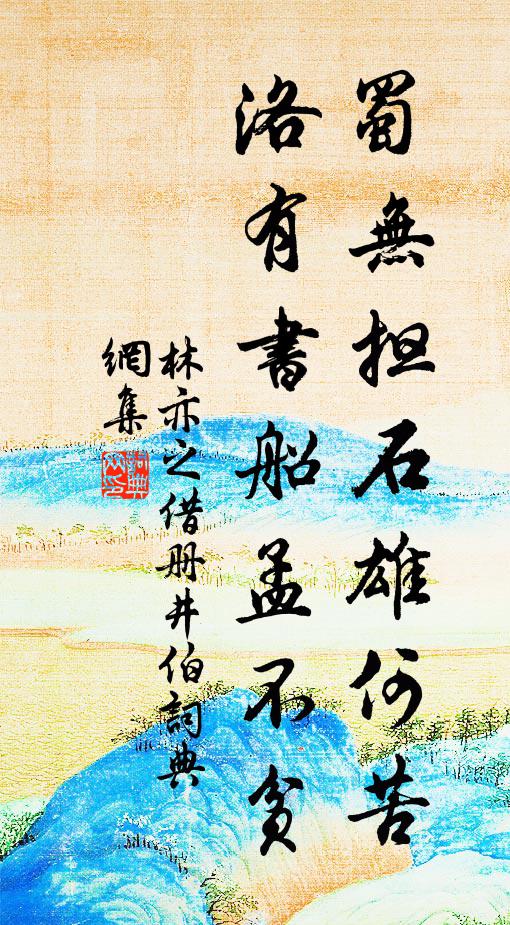 蜀無担石雄何苦
洛有書船孟不貧
林亦之借册井伯詞典
網集